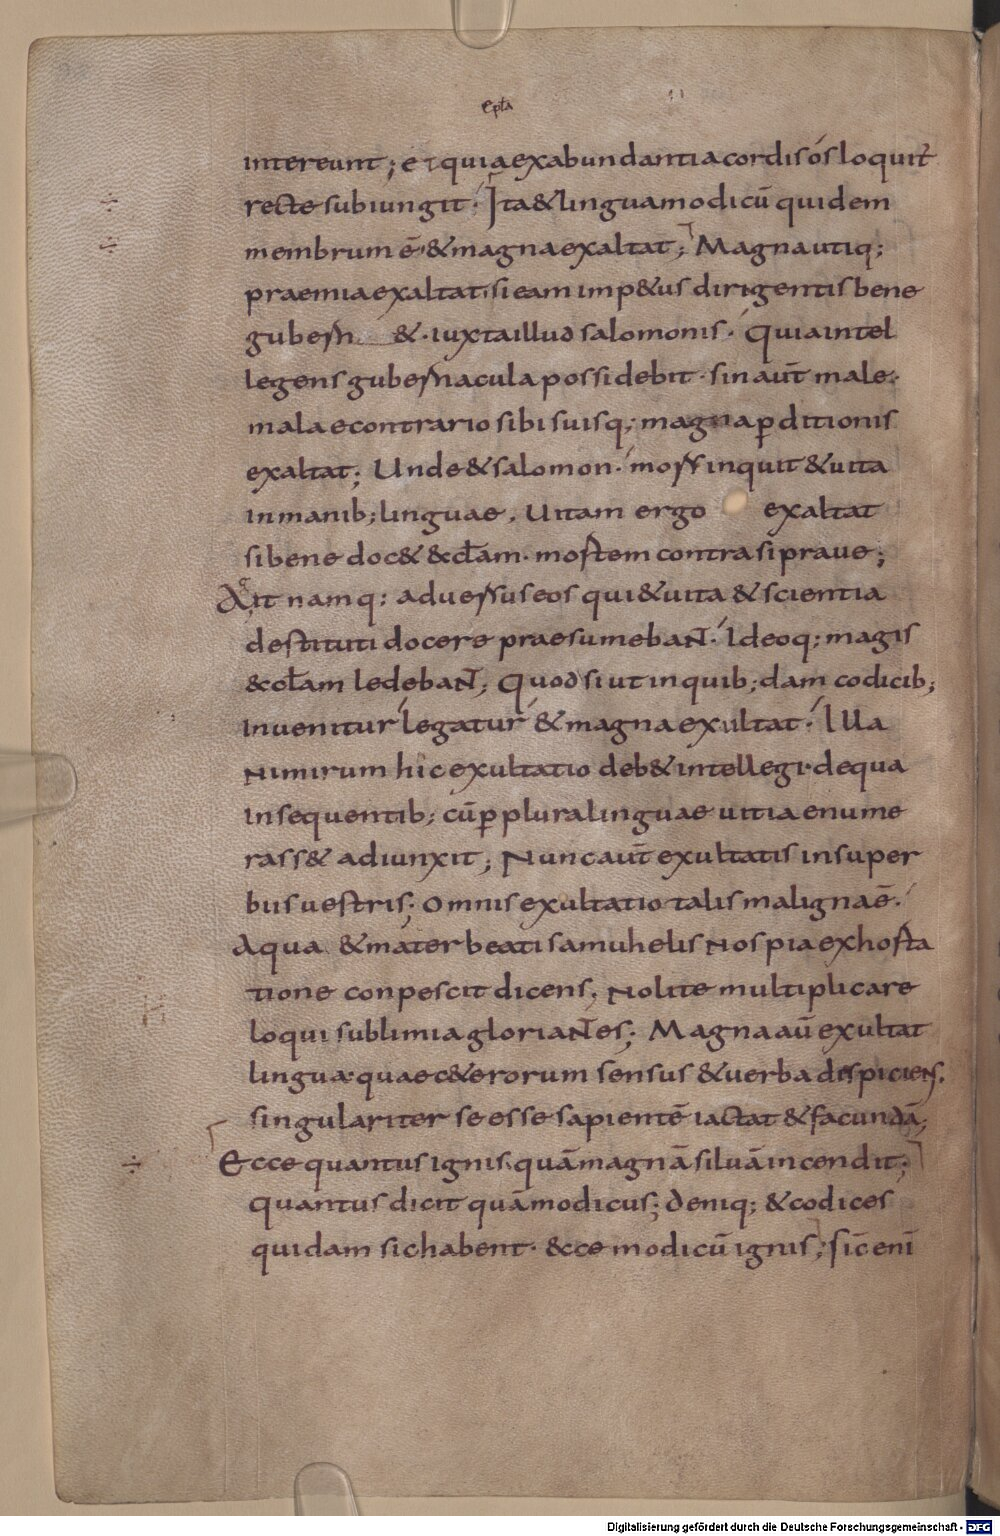 epła
intereunt; et quia ex abundantia cordis ós loquit̄
recte subiungit· Ita & lingua modicū quidem
membrum ē· & magna exaltat; Magna utiq;
praemia exaltat· si eam imp&us dirigentis bene
gubern & · iuxta illud salomonis· Quia intel
legens gubernacula possidebit· sin aut̄ male·
mala e contrario sibi suisq; magna p̄ditionis
exaltat; Unde & salomon· mors inquit & uita
in manib; linguae. Uitam ergo exaltat
si bene doc& &ct̄am· mortem contra si praue;
Ait namq: aduersus eos qui & uita & scientia
destituti docere praesumebaNT· Ideoq; magis
&ct̄am ledebaNT; Quod si ut in quib;dam codicib;
inuenitur legatur & magna exultat· Illa
Nimirum hic exultatio deb& intellegi· de qua
in sequentib; cū p̄plura linguae uitia enume
rass& adiunxit; Nunc aut̄ exultatis in super
biis uestris; Omnis exultatio talis maligna ē·
A qua & mater beati samuhelis Nos pia exhorta
tione conpescit dicens; Nolite multiplicare
loqui sublimia gloriaNTes; Magna aū exultat
lingua· quae c&erorum sensus & uerba dispiciens·
singulariter se esse sapientē iactat & facundā;
Ecce quantus ignis· quā magnā siluā incendit;
quantus dicit quā modicus; deniq; & codices
quidam sic habent· &cce modicū ignis; sic enī
Digitalisierung gefördert durch die Deutsche Forschungsgemeinschaft - DFG